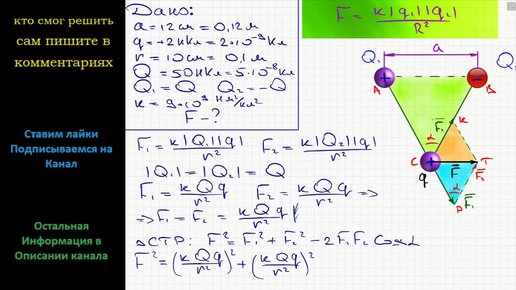 кто смог решить
сам пишите в
комментариях
Ставим лайки
Подписываемся на
Канал
Остальная
Информация в
Описании канала
Дано:
a = 12 см = 0,12 м
q = +2 нКл = 2·10⁻⁹ Кл
r = 10 см = 0,1 м
Q = 50 нКл = 5·10⁻⁸ Кл
Q₁ = Q Q₂ = -Q
k = 9·10⁹ Н·м²/Кл²
F - ?
F = k|q₁||q₁| / R²
F₁ = k|Q₁||q| / r² F₂ = k|Q₂||q| / r²
|Q₁| = |Q₂| = Q
F₁ = kQq / r² F₂ = kQq / r² =>
=> F₁ = F₂ = kQq / r²
△CTP: F² = F₁² + F₂² - 2F₁F₂ Cosα
F² = (kQq / r²)² + (kQq / r²)²
Q₁ a Q₂
A + - B
F₁ K
α
C + F T
q F₂
α
P F₁